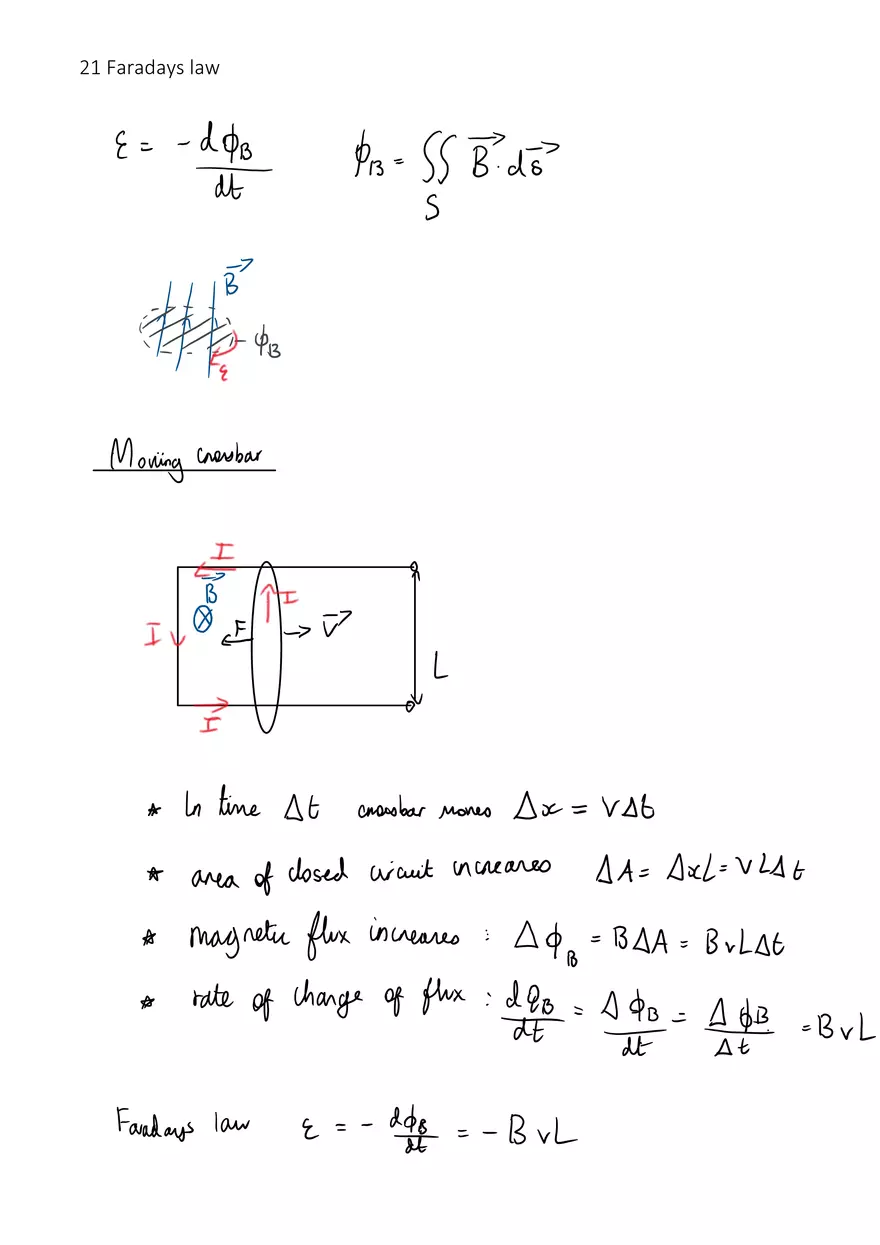 21 Faradays law
ε = - dϕB/dt    ϕB = ∬S B⃗ · ds⃗
B⃗
ϕB
ε
Moving crossbar
I
B⃗
I
I
F
V⃗
L
I
* In time Δt crossbar moves Δx = vΔt
* area of closed circuit increases ΔA = ΔxL = VLΔt
* magnetic flux increases : ΔϕB = BΔA = BvLΔt
* rate of change of flux : dϕB/dt = ΔϕB/dt = ΔϕB/Δt = BvL
Faradays law ε = - dϕB/dt = - BvL